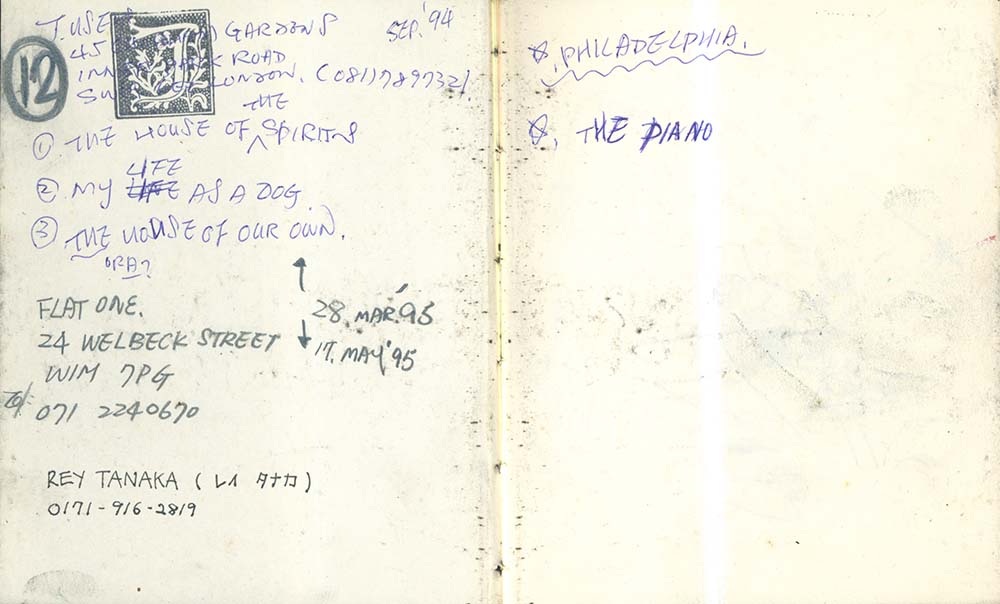 T. USE
GARDENS
SEP. '94
45
12
PARK ROAD
LONDON. (081) 7897321.
THE
① THE HOUSE OF ^ SPIRITS
LIFE
② MY LIFE AS A DOG.
③ THE HOUSE OF OUR OWN.
OR A?
FLAT ONE.
28. MAR. '95
24 WELBECK STREET
17. MAY '95
W1M 7PG
071 2240670
REY TANAKA ( レイ タナカ )
0171-916-2819
☆. PHILADELPHIA.
☆. THE PIANO